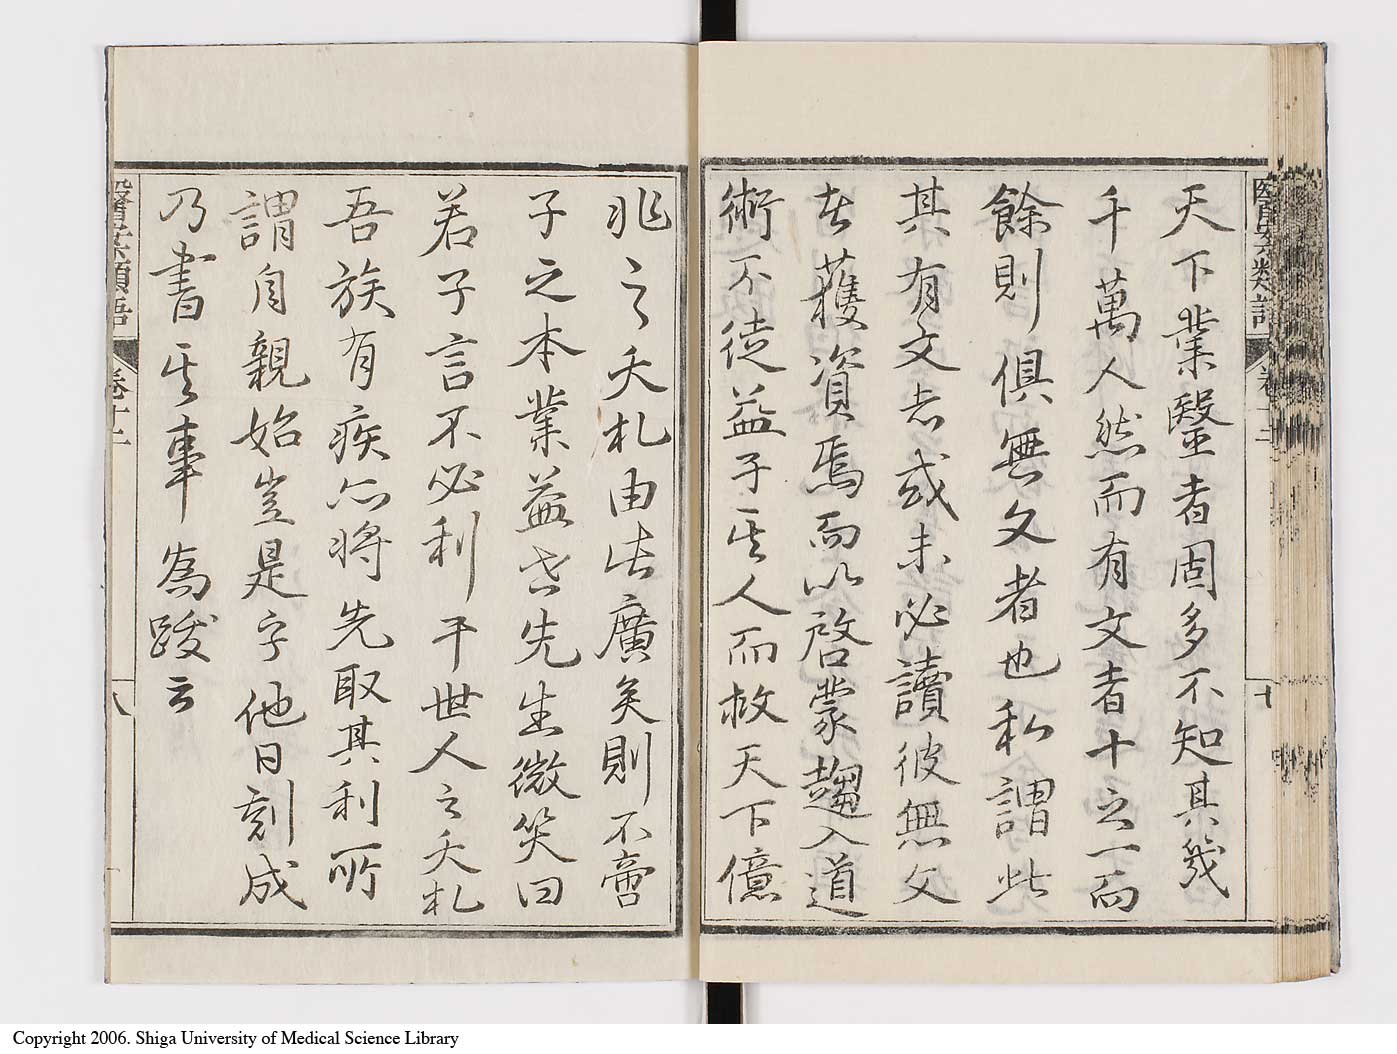 天下業毉者固多不知其幾
千萬人然而有文者十之一而
餘則俱無文者也私謂此
其有文者或未必讀彼無文
者獲資焉而以啓蒙趨入道
術不徒益子其人而救天下億
兆之夭札由此廣矣則不啻
子之本業益也先生微笑曰
若子言不必利于世人之夭札
吾族有疾亦將先取其利所
謂自親始豈是字他日刻成
乃書其事為跋云
醫案類語
卷十二
八
Copyright 2006. Shiga University of Medical Science Library